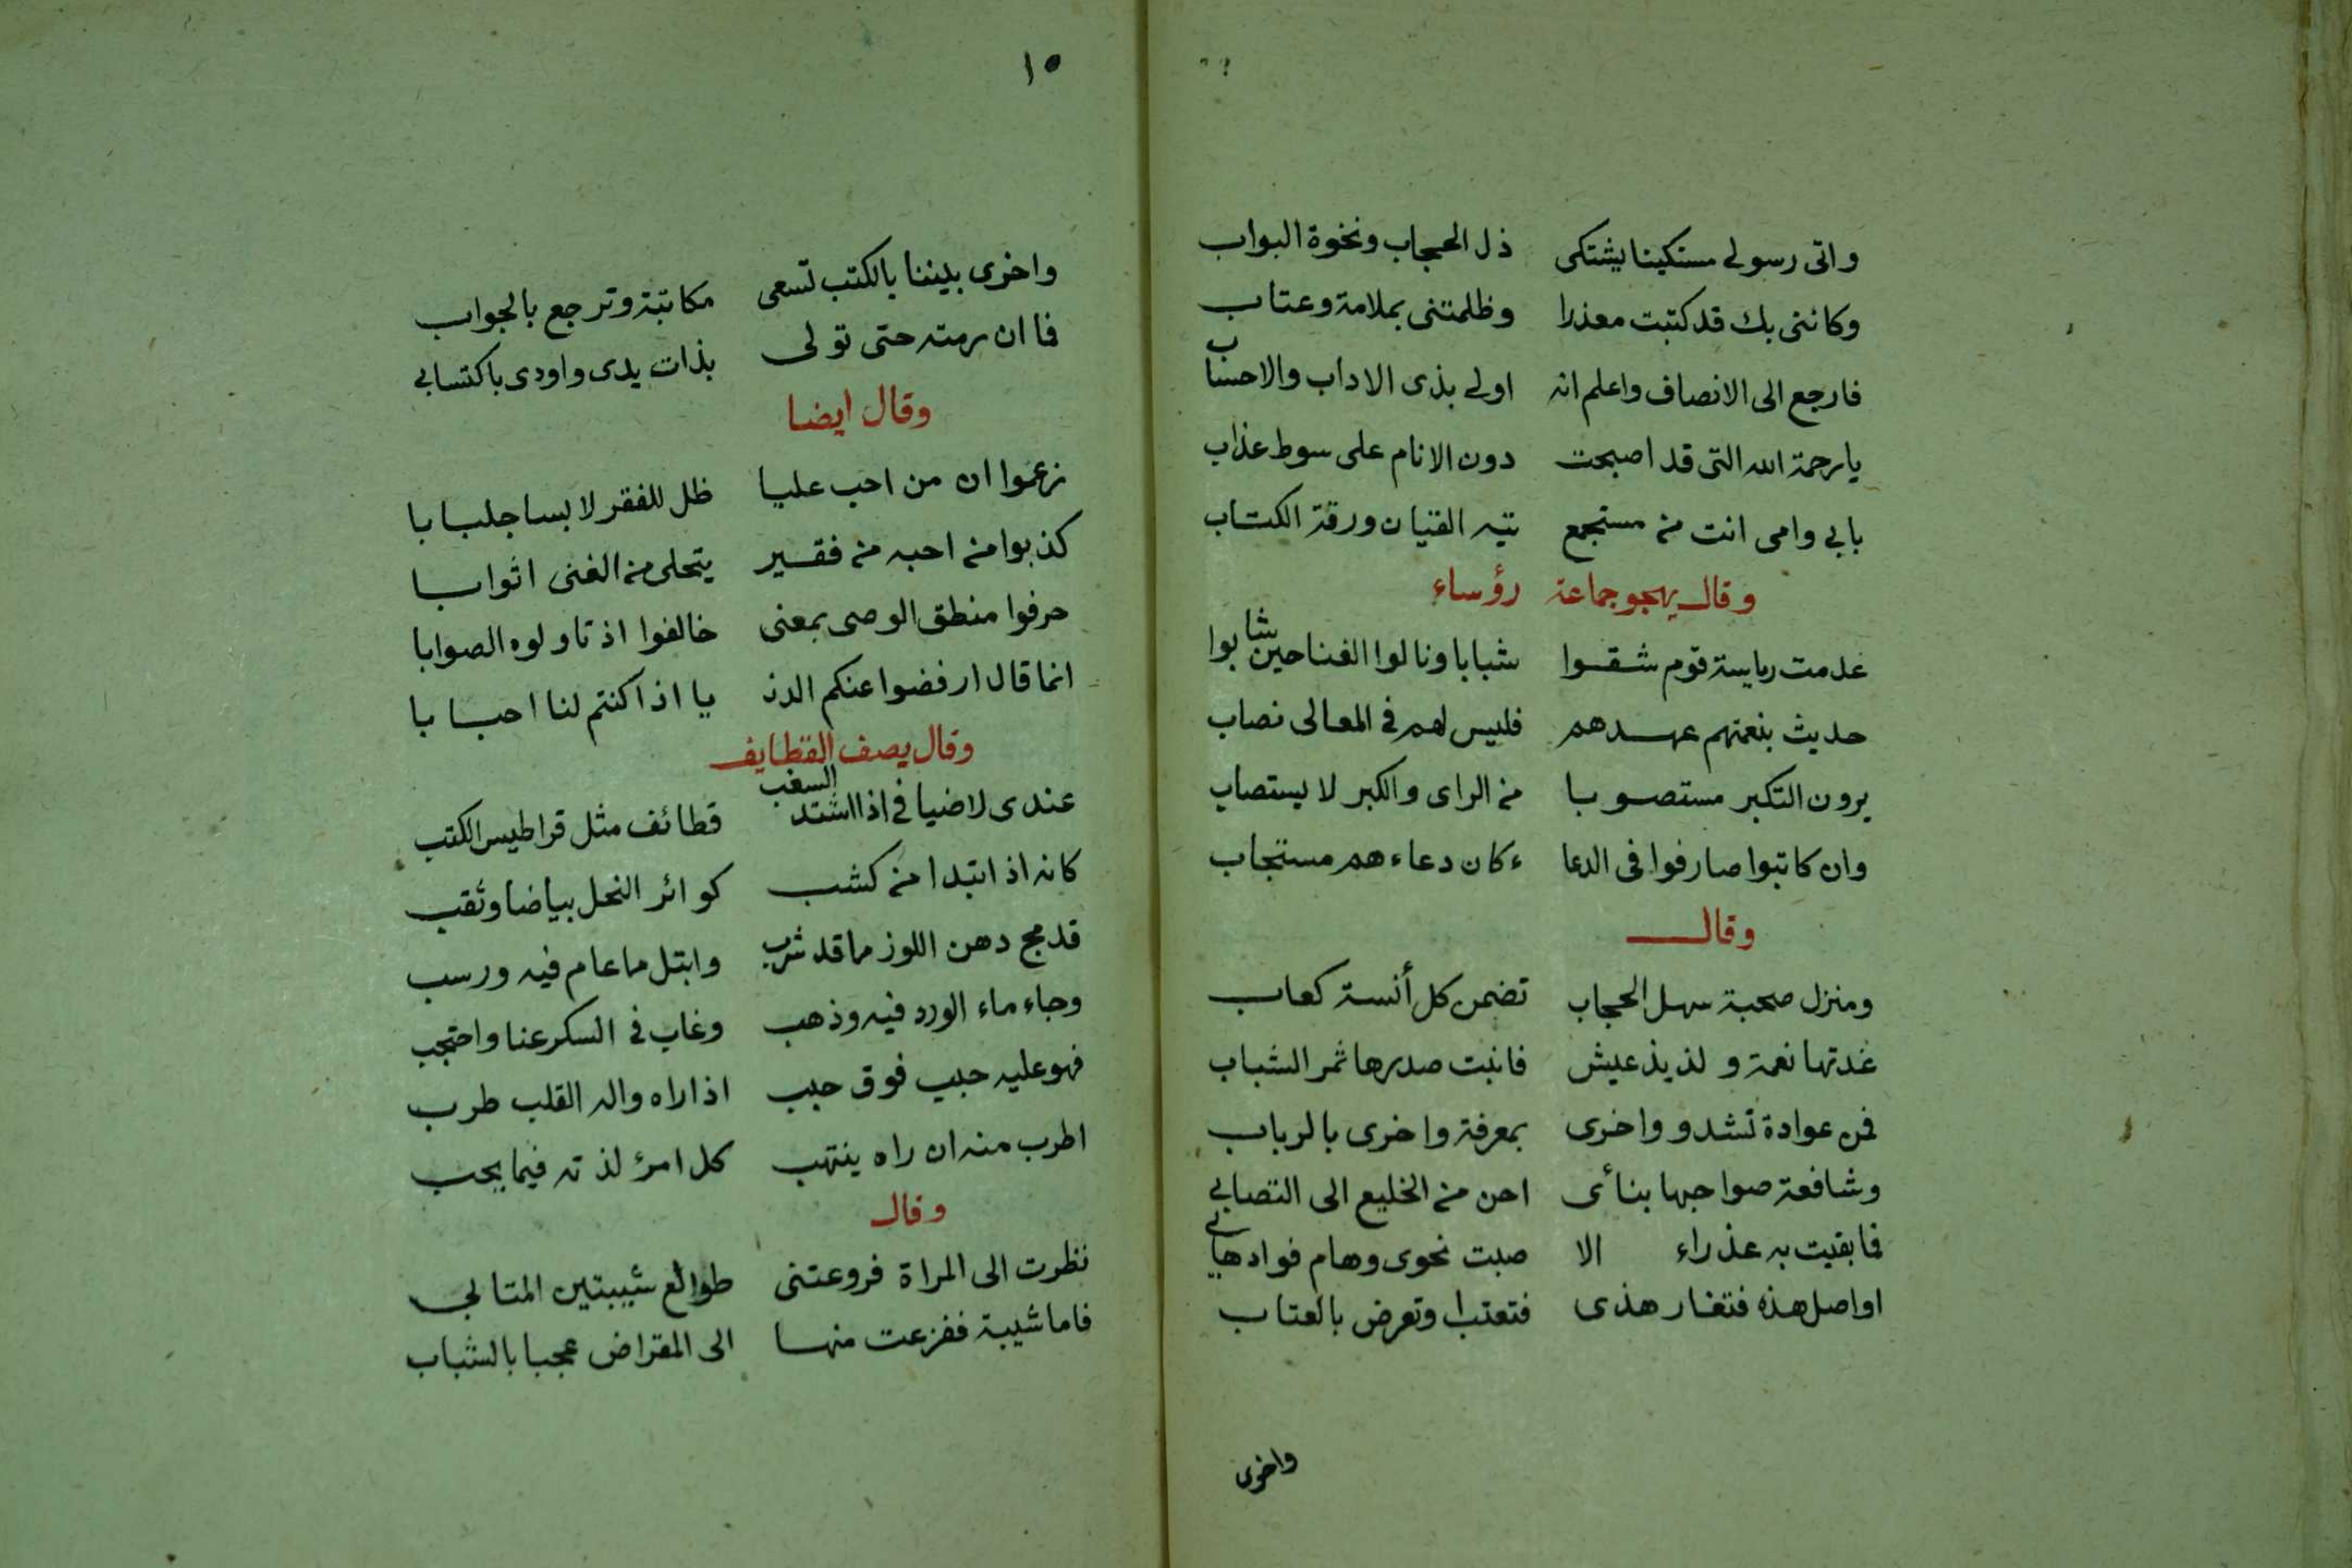 واتى رسولى مستكينا يشتكى ذل الحجاب ونخوة البواب
وكاننى بك قد كتبت معذرا وظلمتنى بملامة وعتاب
فارجع الى الانصاف واعلم انه اولى بذى الاداب والاحساب
يا رحمة الله التى قد اصبحت دون الانام على سوط عذاب
بابى وامى انت من مستجمع تيه القيان ورقة الكتاب
وقال يهجو جماعة رؤساء
عدمت رياسة قوم شقوا شبابا ونالوا الغنا حين شابوا
حديث بنعمتهم عهدهم فليس لهم فى المعالى نصاب
يرون التكبر مستصوبا من الراى والكبر لا يستصاب
وان كاتبوا صارفوا فى الدعا ء كان دعاءهم مستجاب
وقال
ومنزل صحبة سهل الحجاب تضمن كل أنسة كعاب
غدتها نعمة ولذيذ عيش فانبت صدرها ثمر الشباب
فمن عوادة تشدو واخرى بمعرفة واخرى بالرباب
وشافعة صواحبها بنأى احن من الخليع الى التصابى
فما بقيت به عذراء الا صبت نحوى وهام فوادها بى
اواصل هذه فتغار هذى فتعتب او تعرض بالعتاب
واخرى
١٥
واخرى بيننا بالكتب تسعى مكاتبة وترجع بالجواب
فا ان رمته حتى تولى بذات يدى واودى باكتسابى
وقال ايضا
زعموا ان من احب عليا ظل للفقر لابسا جلبابا
كذبوا من احبه من فقير يتحلى من الغنى اثوابا
حرفوا منطق الوصى بمعنى خالفوا اذ تاولوه الصوابا
انما قال ارفضوا عنكم الدنـ يا اذا كنتم لنا احبابا
وقال يصف القطايف
عندى لاضيافى اذا اشتد السغب قطائف مثل قراطيس الكتب
كانه اذ ابتدا من كثب كوائر النحل بياضا وثقب
قد مج دهن اللوز مما قد شرب وابتل مما عام فيه ورسب
وجاء ماء الورد فيه وذهب وغاب فى السكر عنا واحتجب
فهو عليه حبب فوق حبب اذا راه واله القلب طرب
اطرب منه ان راه ينتهب كل امرئ لذته فيما يحب
وقال
نظرت الى المراة فروعتنى طوالع شيبتين المتا بى
فاما شيبة ففزعت منها الى المقراض عجبا بالشباب